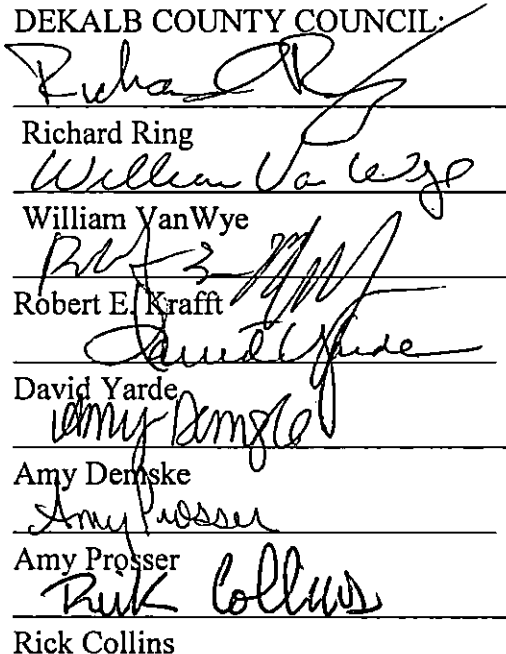 DEKALB COUNTY COUNCIL:
Richard Ring
Richard Ring
William Van Wye
William VanWye
Robert E. Krafft
David Yarde
David Yarde
Amy Demske
Amy Demske
Amy Prosser
Amy Prosser
Rick Collins
Rick Collins